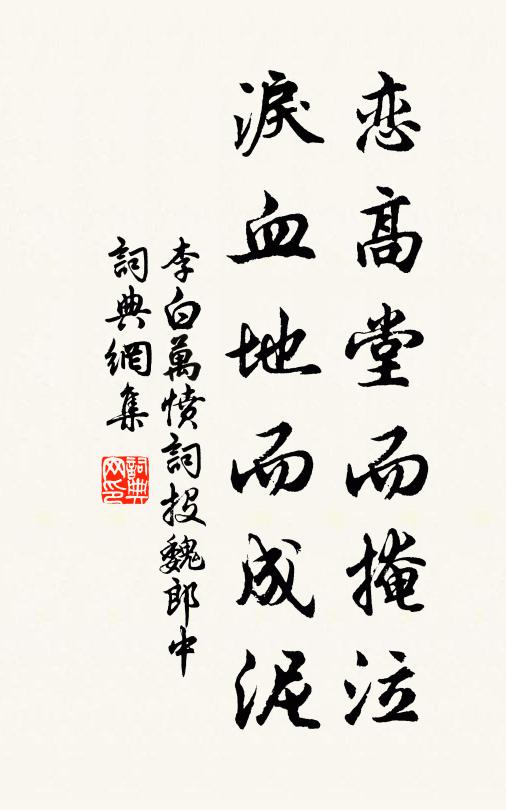 恋高堂而掩泣
淚血地而成泥
李白萬憤詞投魏郎中
詞典網集
詞典網印